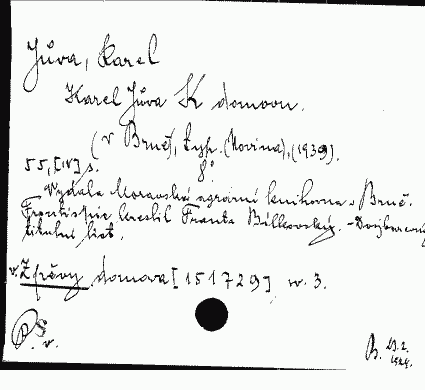 Jůva, Karel
Karel Jůva K domovu.
(v Brně), typ. (Novina), (1939).
55, [IV] s. 8°
Vydala Moravská agrární knihovna v Brně.
Frontispice kreslil Franta Bílkovský. - Dvojbarevný
titulní list.
v. Zpěvy domova [151729] sv. 3.
B. 29.2.